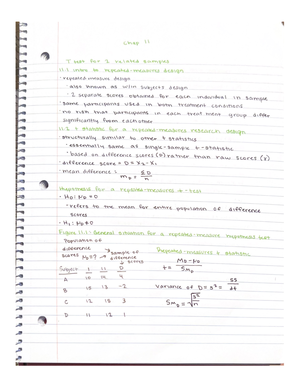 Chap 11
T test for 2 related samples
11.1 intro to repeated-measures design
- repeated measure design
- also known as w/in subjects design
- 2 separate scores obtained for each individual in sample
same participants used in both treatment conditions
no risk that participants in each treatment group differ
significantly from each other
11.2 t statistic for a repeated-measures research design
structurally similar to other t statistics
- essentially same as single-sample t-statistic
- based on difference scores (D) rather than raw scores (X)
- difference score = D = X₂ - X₁
- mean difference =
M_D = ΣD / n
Hypothesis for a repeated-measures t-test
- H₀: μ_D = 0
- refers to the mean for entire population of difference
scores
- H₁: μ_D ≠ 0
Figure 11.1: General situation for a repeated-measures hypothesis test
Population of
difference
scores μ_D = ?
sample of
difference
scores
Repeated-measures t statistic
t = M_D - μ_D / S_MD
Subject I II D
A
B 15 13 -2
variance of D = s² = SS / df
C 12 15 3
S_MD = √ s² / n
D 11 12 1